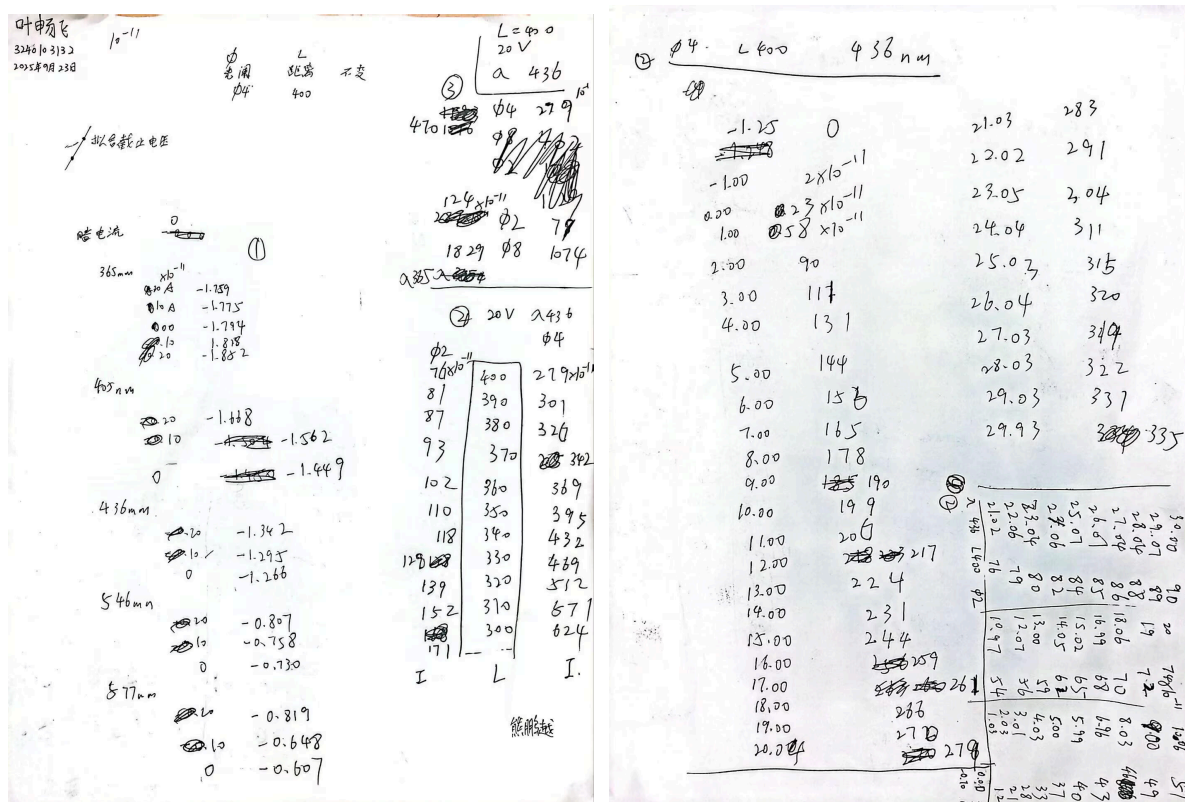 叶畅飞
3246103132
2025年9月23日
10⁻¹¹
φ L
光阑 距离 不变
φ4 400
拟合截止电压
暗电流 0
①
365nm
×10⁻¹¹
20 A -1.759
10 A -1.775
00 -1.794
10 1.818
20 -1.852
405nm
20 -1.668
10 -1.562
0 -1.449
436nm
20 -1.342
10 -1.295
0 -1.266
546nm
20 -0.807
10 -0.758
0 -0.730
577nm
20 -0.819
10 -0.648
0 -0.607
L=400
20V
λ 436
③
470 φ4 279
124×10⁻¹¹
φ2 78
1829 φ8 1074
λ365
② 20V λ436
φ2 φ4
76×10⁻¹¹ 400 279×10⁻¹¹
81 390 301
87 380 320
93 370 342
102 360 369
110 350 395
118 340 432
128 330 469
139 320 512
152 310 571
171 300 624
I L I.
熊鹏越
② φ4. L400 436nm
-1.25 0
-1.00 2×10⁻¹¹
0.00 23×10⁻¹¹
1.00 58×10⁻¹¹
2.00 90
3.00 111
4.00 131
5.00 144
6.00 156
7.00 165
8.00 178
9.00 190
10.00 199
11.00 206
12.00 217
13.00 224
14.00 231
15.00 244
16.00 259
17.00 261
18.00 266
19.00 270
20.04 278
21.03 283
22.02 291
23.05 304
24.04 311
25.03 315
26.04 320
27.03 319
28.03 322
29.03 331
29.93 335
②
λ 436 L400 φ2
21.02 76
22.06 79
23.04 80
24.06 82
25.07 84
26.01 85
27.04 86
28.04 88
29.07 89
30.00 90
10.97 54
12.07 56
13.00 59
14.05 62
15.02 65
16.99 68
18.06 70
19 72
20 74×10⁻¹¹
2.03
3.01
4.03 33
5.00 37
5.99 40
6.96 43
8.03
9.00 49